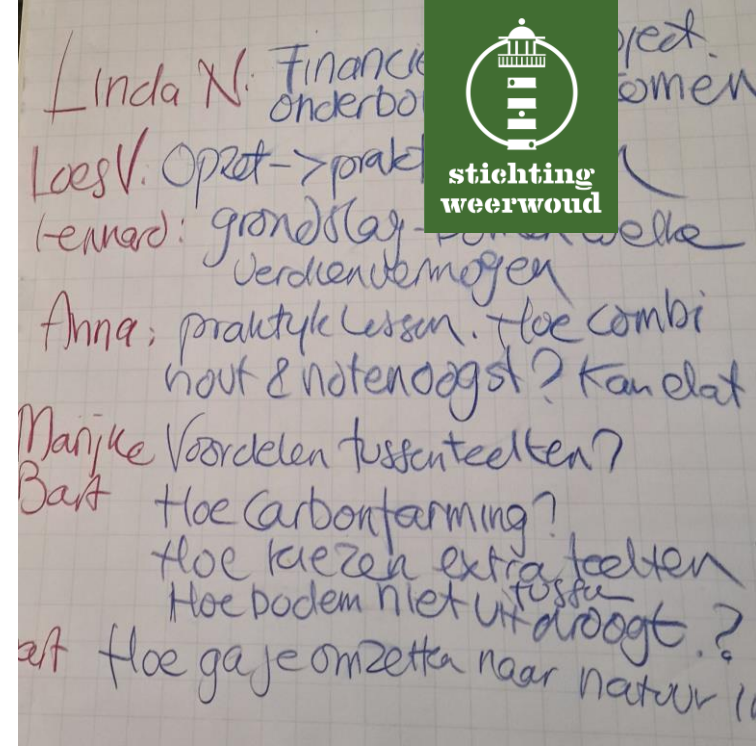 Linda N: Financië oject.
onderbo omen
stichting
weerwoud
Loes V. Opzet -> prakt
Lennard: grondslag - welke
Verdienvermogen
Anna: praktyk lessen. Hoe combi
hout & notenoogst? Kan dat
Marijke Voordelen tussenteelten?
Bart Hoe Carbonfarming?
Hoe kiezen extra teelten
tussen
Hoe bodem niet uitdroogt.?
Hoe ga je omzetten naar natuur